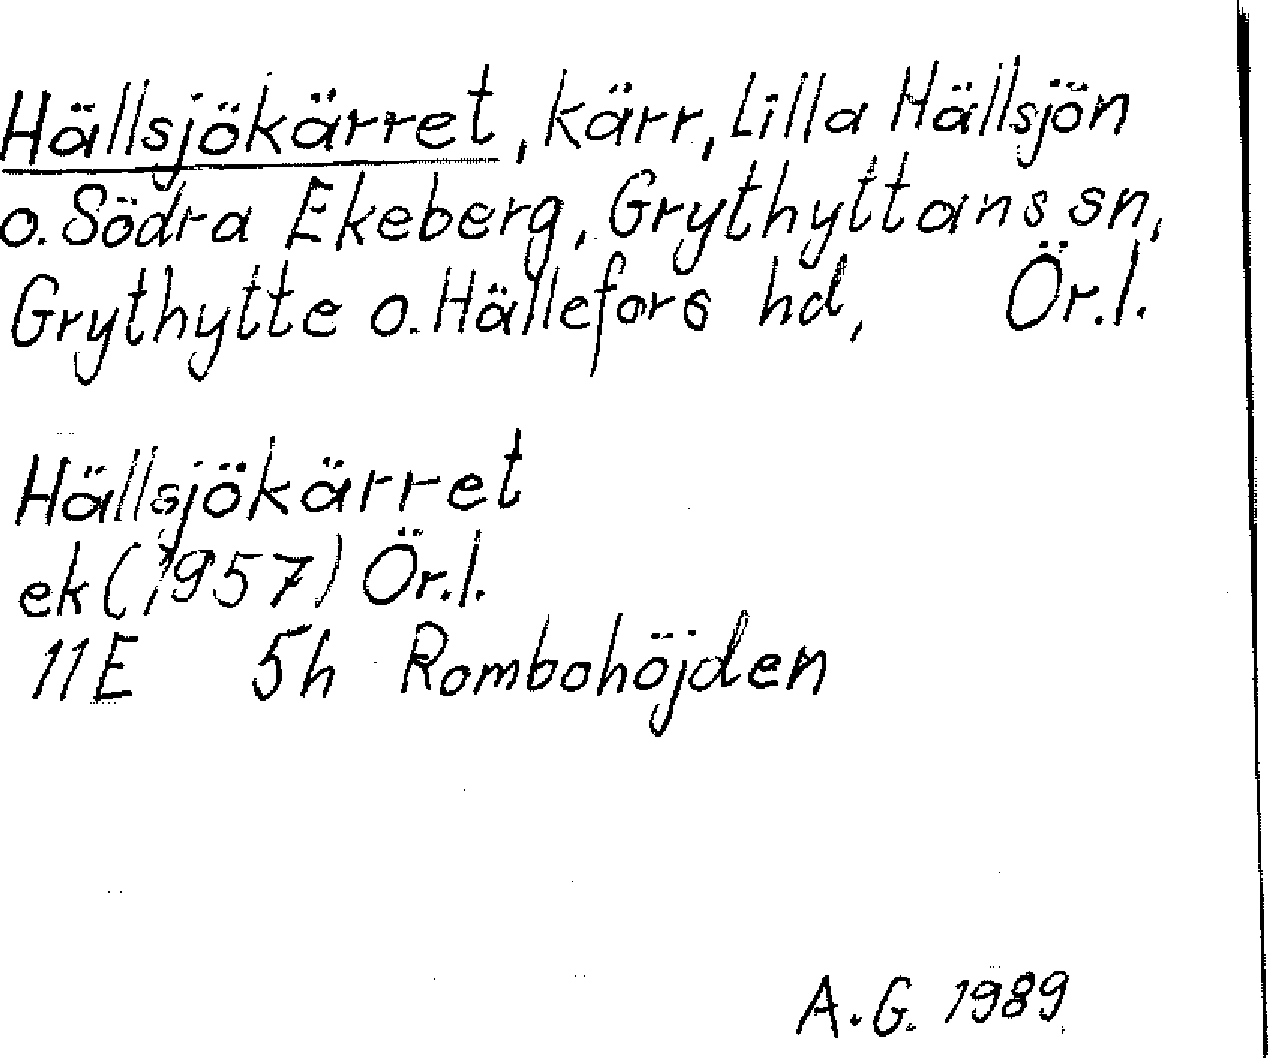 Hällsjökärret, kärr, Lilla Hällsjön
o. Södra Ekeberg, Grythyttans sn,
Grythytte o. Hällefors hd, Ör.l.
Hällsjökärret
ek (1957) Ör.l.
11E 5h Rombohöjden
A.G. 1989